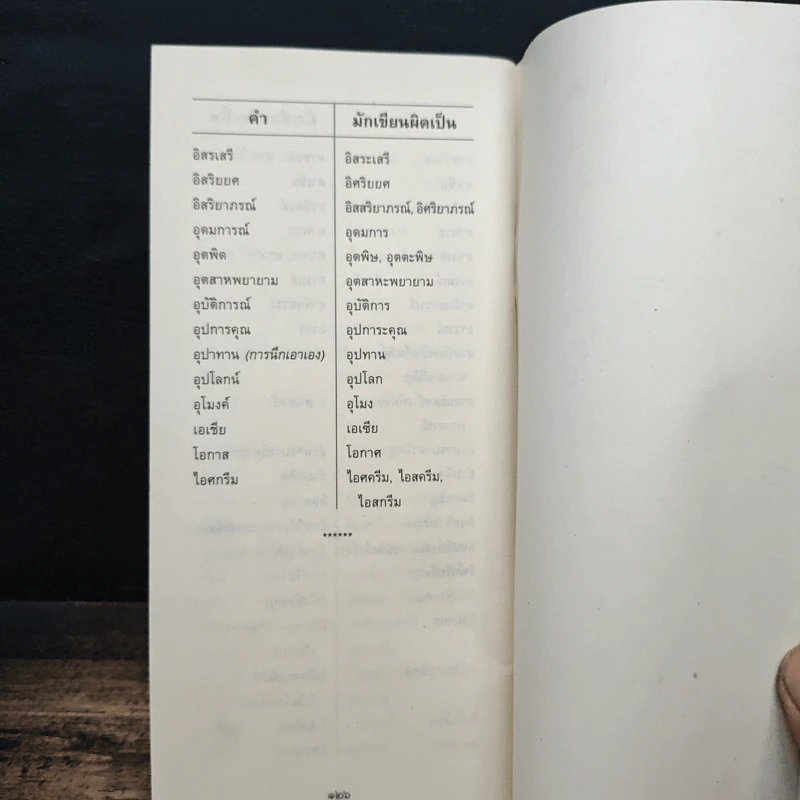 คำ มักเขียนผิดเป็น
อิสรเสรี อิสระเสรี
อิสริยยศ อิศริยยศ
อิสริยาภรณ์ อิสสริยาภรณ์, อิศริยาภรณ์
อุดมการณ์ อุดมการ
อุตพิด อุตพิษ, อุตตะพิษ
อุตสาหพยายาม อุตสาหะพยายาม
อุบัติการณ์ อุบัติการ
อุปการคุณ อุปการะคุณ
อุปาทาน (การนึกเอาเอง) อุปทาน
อุปโลกน์ อุปโลก
อุโมงค์ อุโมง
เอเชีย เอเซีย
โอกาส โอกาศ
ไอศกรีม ไอศครีม, ไอสครีม,
ไอสกรีม
******